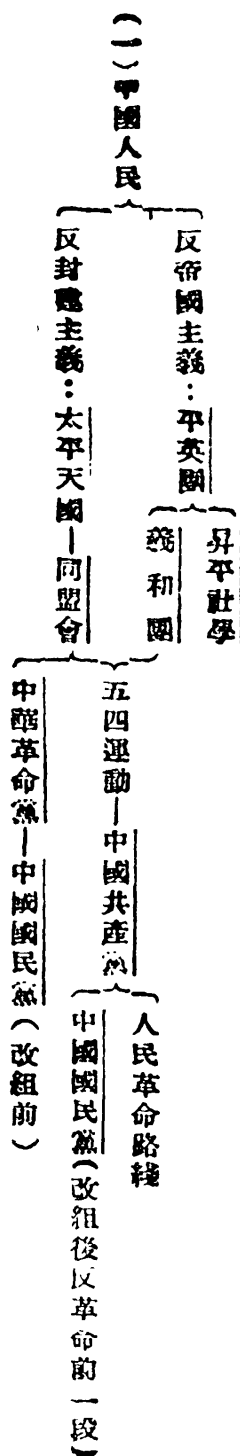 (一)中國人民
反帝國主義：平英團
昇平社學
義和團
反封建主義：太平天國—同盟會
五四運動—中國共產黨
人民革命路綫
中國國民黨(改組後反革命前一段)
中華革命黨—中國國民黨(改組前)